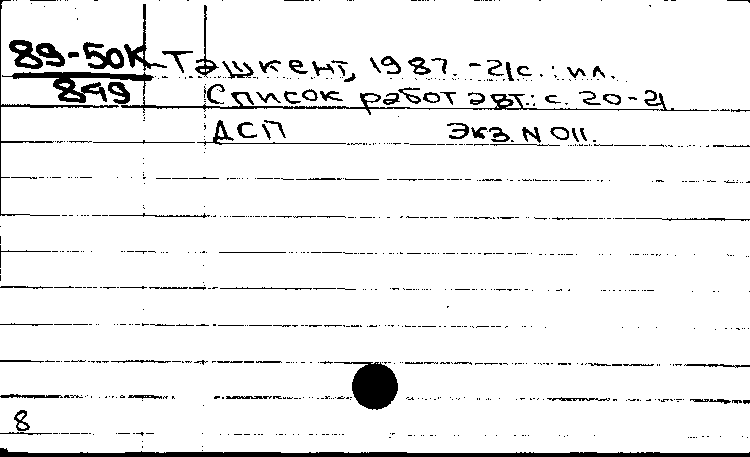 89-50К Ташкент, 1987. - 21с. : ил.
849 Список работ авт.: с. 20-21.
ДСП Экз. N 011.
8